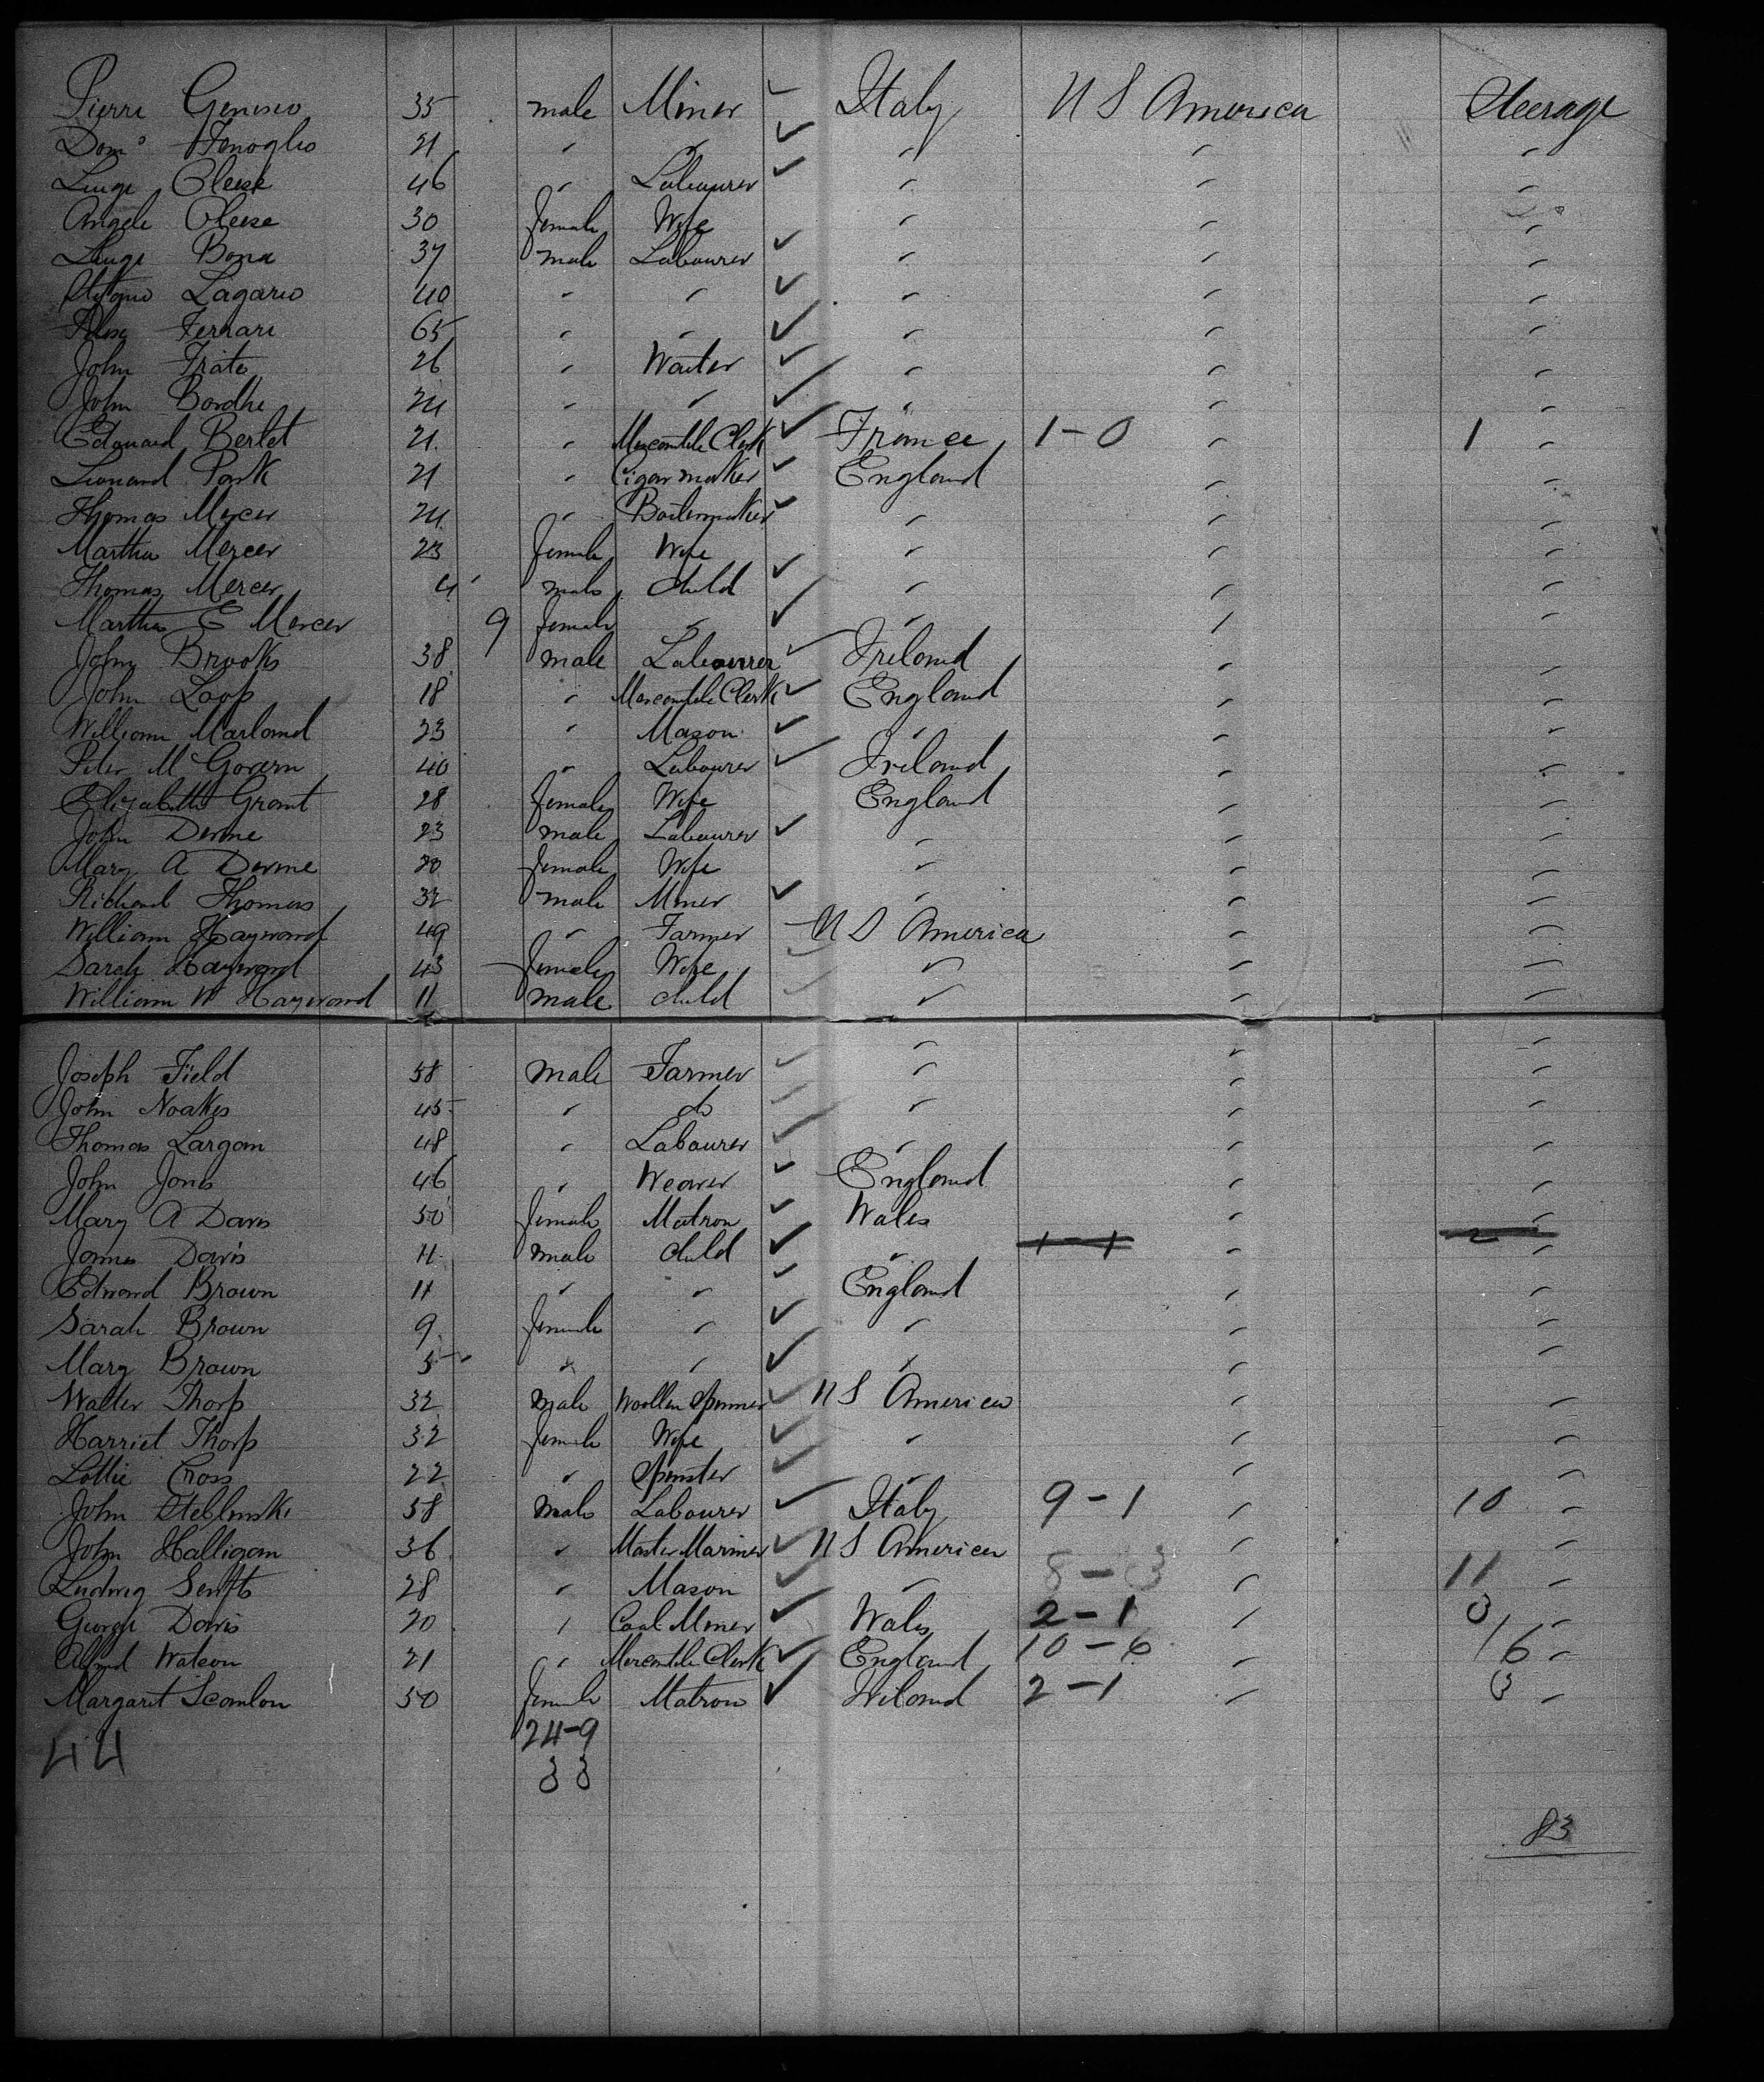 Pierre Genesio 35 male Miner ✓ Italy U S America Steerage
Domo Fenoglio 21 " " ✓ " " "
Luigi Cleese 46 " Labourer ✓ " " "
Angele Cleese 30 female Wife " " "
Luigi Bona 37 male Labourer ✓ " " "
Lagario 40 " " ✓ " " "
Ferrari 65 " " ✓ " " "
John Frate 26 " Waiter ✓ " " "
John Bordhe 24 " " ✓ " " "
Edouard Berlet 21 " Mercantile Clerk ✓ France 1-0 " 1 "
Leonard Park 21 " Cigar maker ✓ England " "
Thomas Mercer 24 " Boilermaker ✓ " " "
Martha Mercer 23 female Wife " " "
Thomas Mercer 4 male child ✓ " " "
Martha E Mercer 9 female " ✓ " " "
John Brooks 38 male Labourer ✓ Ireland " "
John Loop 18 " Mercantile Clerk ✓ England " "
William Marland 23 " Mason ✓ " " "
Peter McGovern 40 " Labourer ✓ Ireland " "
Elizabeth Grant 28 female Wife England " "
John Derme 23 male Labourer ✓ " " "
Mary A Derme 20 female Wife " " "
Richard Thomas 32 male Miner ✓ " " "
William Hayward 49 " Farmer U S America " "
Sarah Hayward 43 female Wife ✓ " " "
William W Hayward 11 male child ✓ " " "
Joseph Field 58 male Farmer ✓ " " "
John Noakes 45 " do ✓ " " "
Thomas Largan 48 " Labourer ✓ " " "
John Jones 46 " Weaver ✓ England " "
Mary A Davis 50 female Matron ✓ Wales " "
James Davis 11 male child ✓ " 1-1 " 2 "
Edward Brown 11 " " ✓ England " "
Sarah Brown 9 female " ✓ " " "
Mary Brown 5 " " ✓ " " "
Walter Thorp 32 male Woollen Spinner ✓ U S America " "
Harriet Thorp 32 female Wife ✓ " " "
Lottie Cross 22 " Spinster ✓ " " "
John Steblinski 58 male Labourer ✓ Italy 9-1 " 10 "
John Halligan 36 " Master Mariner ✓ U S America " "
Ludwig Senfts 28 " Mason ✓ " 8-3 " 11 "
George Davis 20 " Coal Miner ✓ Wales 2-1 " 3 "
Alfred Watson 21 " Mercantile Clerk ✓ England 10-6 " 16 "
Margaret Scanlon 50 female Matron ✓ Ireland 2-1 " 3 "
44 24-9
33
83